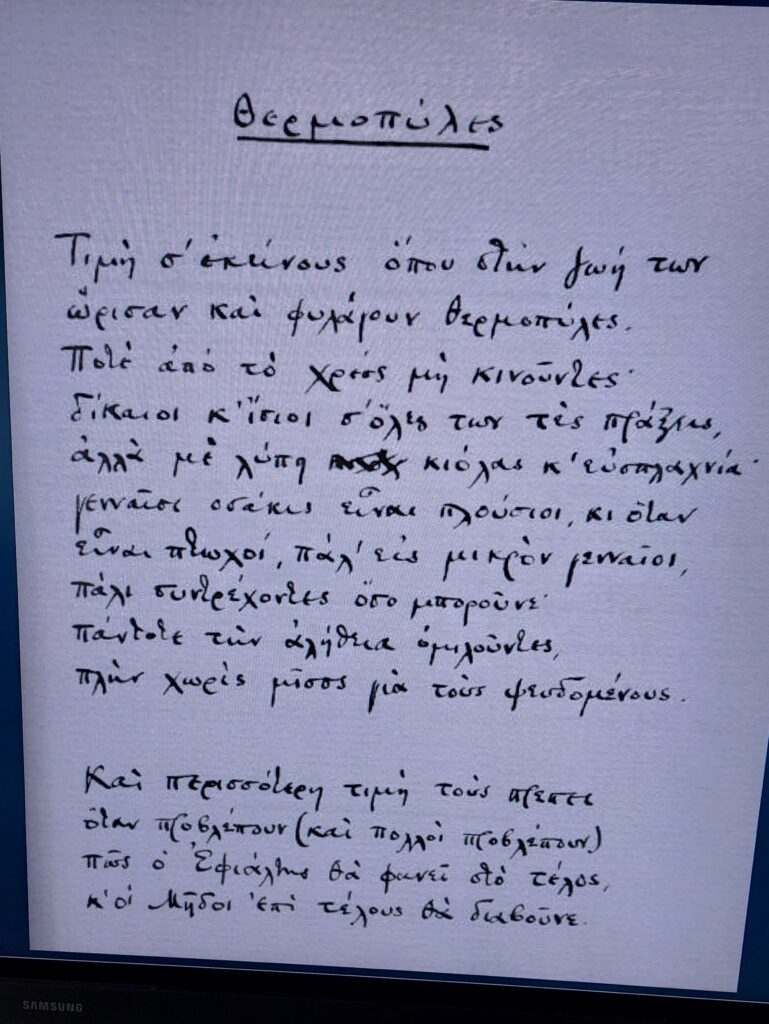 Θερμοπύλες
Τιμὴ σ' ἐκείνους ὅπου στὴν ζωή των
ὥρισαν καὶ φυλάγουν Θερμοπύλες.
Ποτὲ ἀπὸ τὸ χρέος μὴ κινοῦντες·
δίκαιοι κ' ἴσιοι σ' ὅλες των τὲς πράξεις,
ἀλλὰ μὲ λύπη κιόλας κ' εὐσπλαχνία·
γενναῖοι οσάκις εἶναι πλούσιοι, κι ὅταν
εἶναι πτωχοί, πάλ' εἰς μικρὸν γενναῖοι,
πάλι συντρέχοντες ὅσο μποροῦνε·
πάντοτε τὴν ἀλήθεια ὁμιλοῦντες,
πλὴν χωρὶς μῖσος γιὰ τοὺς ψευδομένους.
Καὶ περισσότερη τιμὴ τοὺς πρέπει
ὅταν προβλέπουν (καὶ πολλοὶ προβλέπουν)
πῶς ὁ Ἐφιάλτης θὰ φανεῖ στὸ τέλος,
κ' οἱ Μῆδοι ἐπὶ τέλους θὰ διαβοῦνε.
SAMSUNG